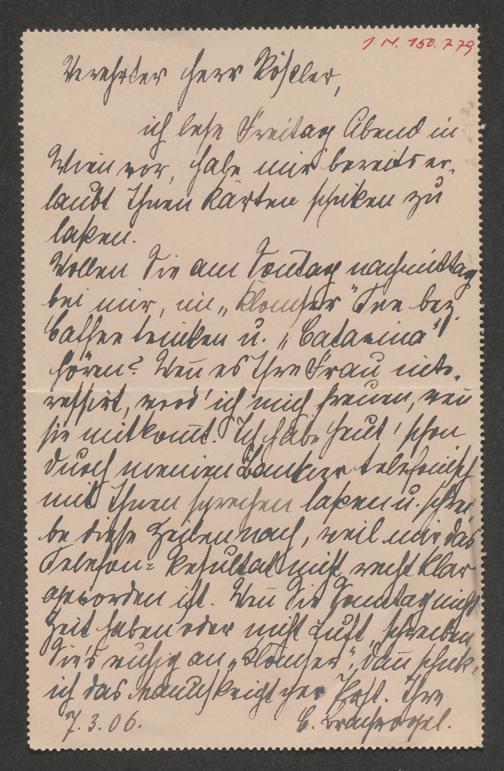 J. N. 150.779
Verehrter Herr Rößler,
ich lese Freitag Abend in
Wien vor, habe mir bereits er-
laubt Ihnen Karten schiken zu
laßen.
Wollen Sie am Sontag nachmittag
bei mir, im „Klomser" Tee bez.
Caffee trinken u. „Catarina"
hören? Wen̅ es Ihre Frau inte-
ressirt, werd' ich mich freuen, wen̅
sie mitkom̅t. Ich habe heut' schon
durch meinen Bankier telefonisch
mit Ihnen sprechen laßen u. schrei
be diese Zeilen nach, weil mir das
Telefon-Resultat nicht recht klar
geworden ist. Wen̅ Sie Sontag nicht
Zeit haben oder nicht Lust, schreiben
Sie's ruhig an „Klomser", dan̅ schik'
ich das per Post. Ihre
7.3.06. C. Brachvogel.